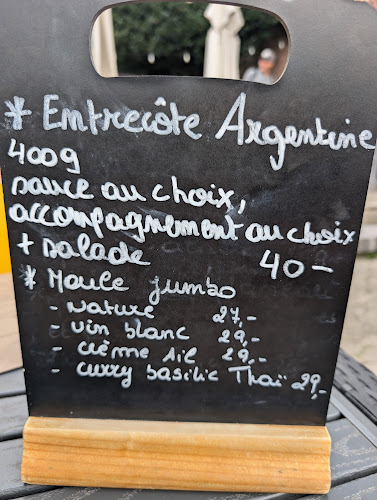 * Entrecôte Argentine
400g
sauce au choix,
accompagnement au choix
+ salade 40-
* Moule jumbo
- Nature 27,-
- vin blanc 29,-
- crème Ail 29,-
- curry basilic Thaï 29,-